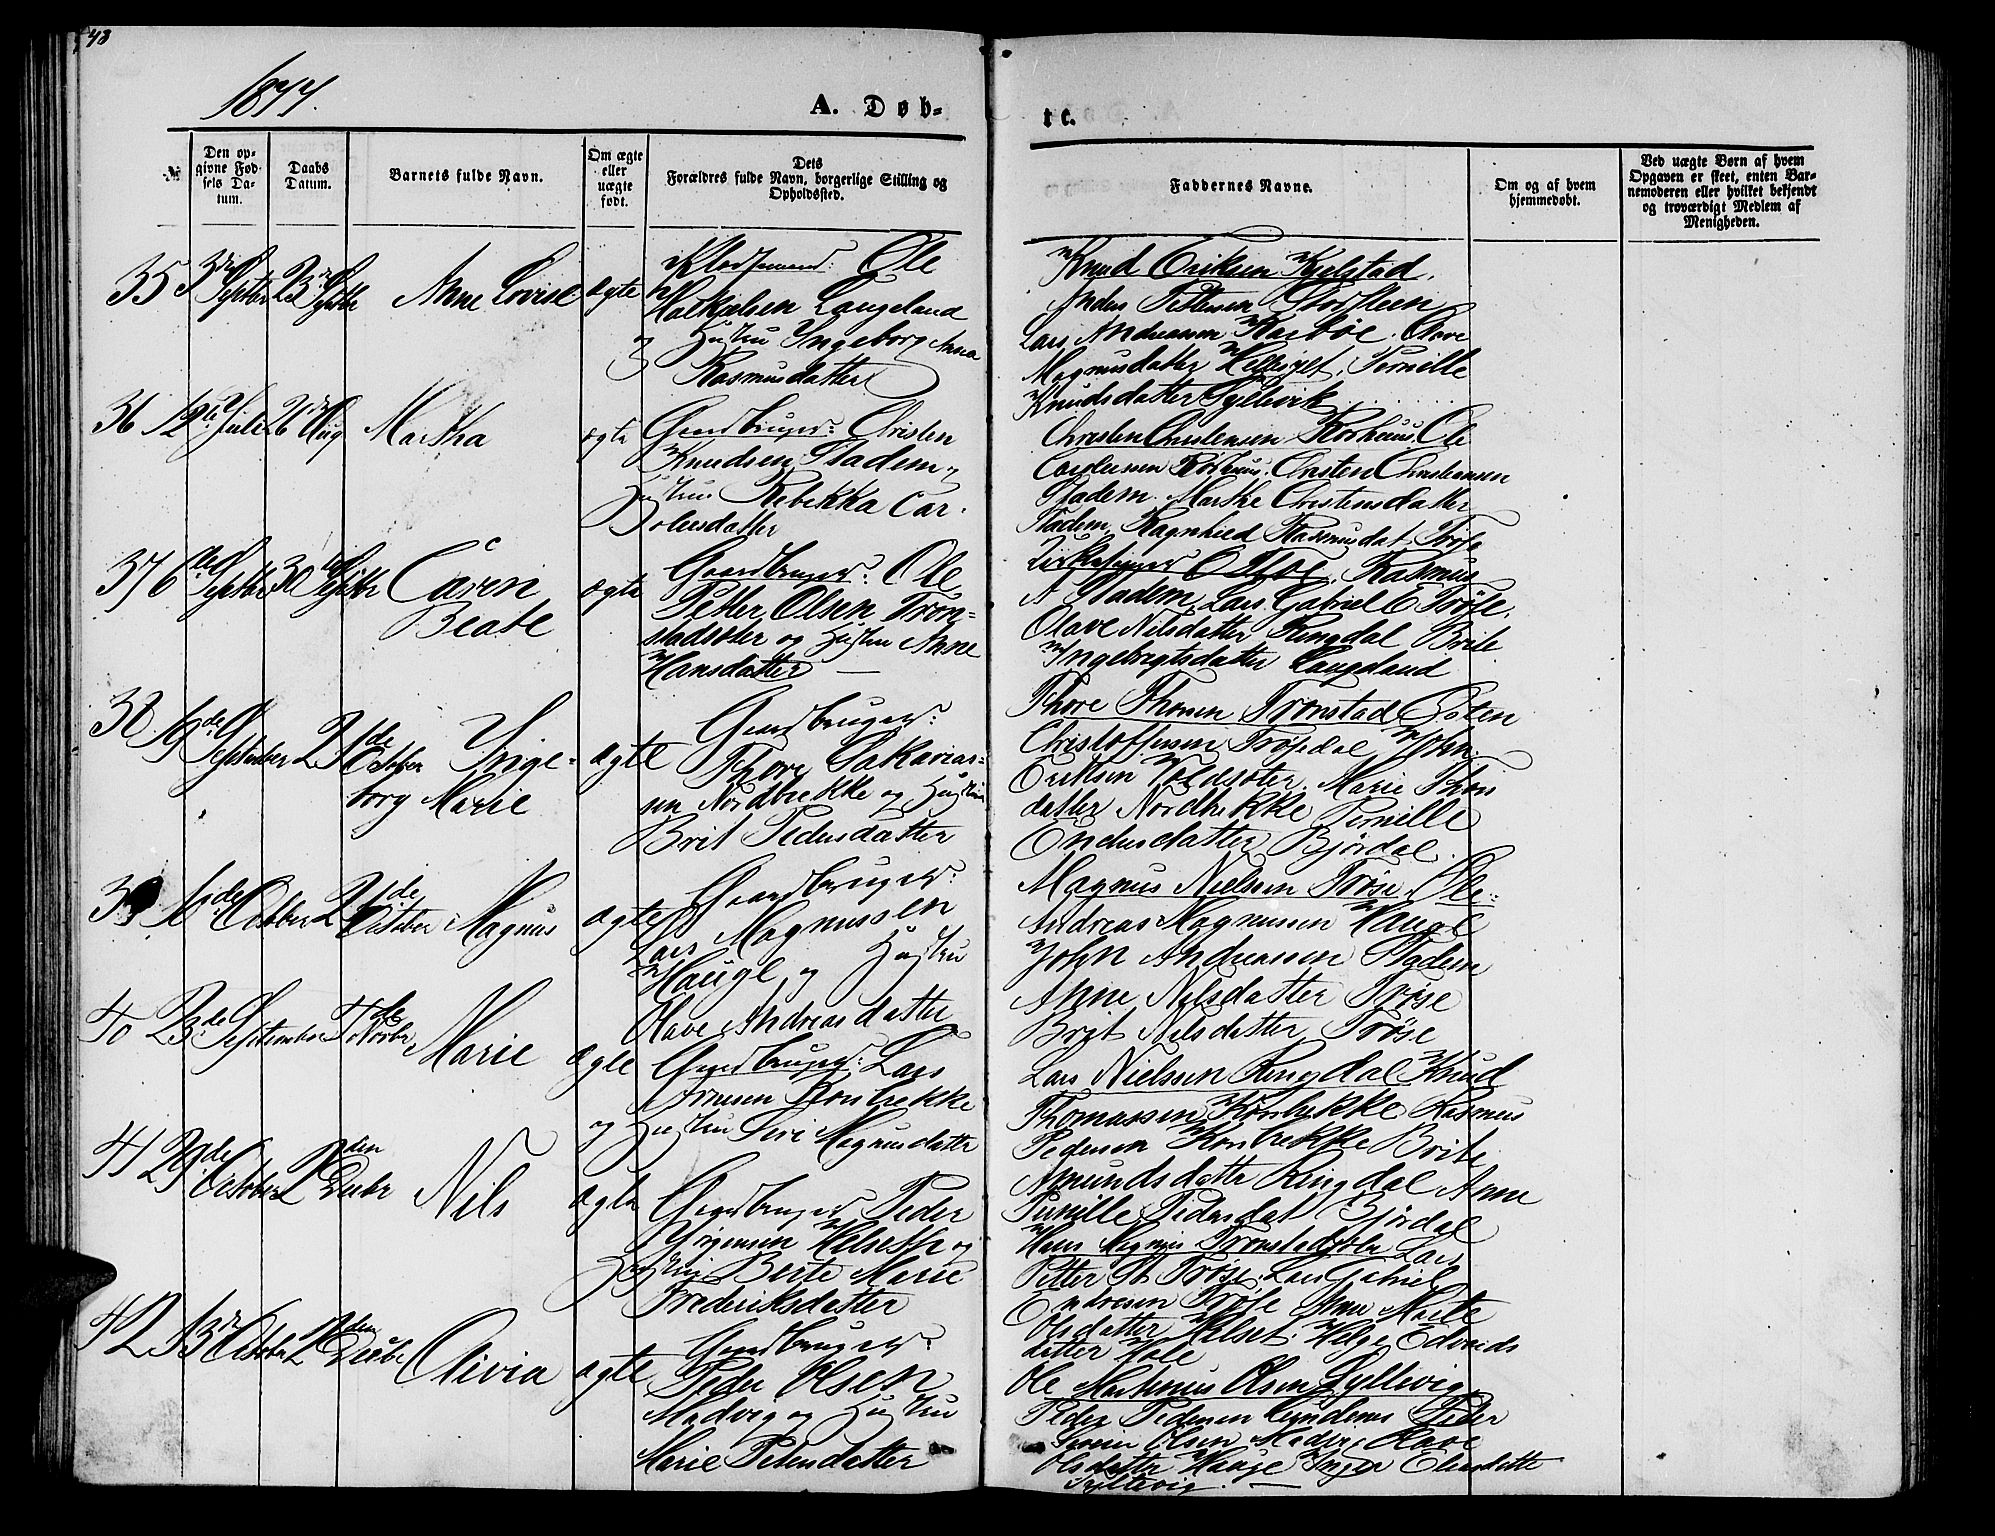 48
1877.
A. Døb-
te.
№
Den opgivne Fødsels Datum.
Daabs Datum.
Barnets fulde Navn.
Om ægte eller uægte født.
Dets Forældres fulde Navn, borgerlige Stilling og Opholdssted.
Faddernes Navne.
Om og af hvem hjemmedøbt.
Ved uægte Børn af hvem Opgaven er skeet, enten Barnemoderen eller hvilket bekjendt og troværdigt Medlem af Menigheden.
35 3die Septbr 23de Septbr Anne Lovise ægte
Ole
Langeland
og Hustru Ingeborg Anna
Rasmusdatter
Knud Eriksen Kjelstad,
Anders Pettersen Storsteen
Lars Andreassen Karbøe. Olave
Magnusdatter Pernille
Knudsdatter Syltevik
36 12te Juli 26de Aug. Martha ægte
Gaardbruger: Christen
Knudsen Stadem og
Hustru Rebekka Car-
olusdatter
Christen Christensen Rørhuus. Ole
Carolussen Rørhuus. Christen Christensen
Stadem. Marthe Christensdatter
Stadem. Ragnhild Rasmusdat. Trøse
37 6te Septbr 30te Septbr Caren Beate ægte
Gaardbruger: Ole
Petter Olsen Tron-
stadsæter og Hustru Anne
Hansdatter
Kirkesanger Rasmus
A Stadem, Lars Gabriel E Trøse.
Olave Nilsdatter Ringdal Brite
Ingebrigtsdatter Langeland
38 19de September 21de October Inge-
borg Marie ægte
Gaardbruger:
Thore Sakarias-
sen Nordbrekke og Hustru
Brit Pedersdatter
Thore Thoresen Tronstad Østen
Christoffersen Trøsedal John
Eriksen Marie Thors
datter Nordbrekke Pernille
Endresdatter Bjørdal.
39 16de October 21de October Magnus ægte
Gaardbruger:
Lars Magnussen
Hauge og Hustru
Olave Andreasdatter
Magnus Nielssen Trøse. Ole
Andreas Magnussen Hauge
John Andreassen Stadem
Anne Nilsdatter Trøse
Brit Nilsdatter Trøse
40 23de September 4de Novbr Marie ægte
Gaardbruger: Lars
Kornbrekke
og Hustru Siri Magnusdatter
Lars Nielssen Ringdal Knud
Thomassen Kornbrekke Rasmus
Pedersen Kornbrekke Brite
Amundsdatter Ringdal Anne
Pernille Pedersdat Bjørdal
41 29de October 2den Decbr Nils ægte
Gaardbruger Peder
Jørgensen Helseth og
Hustru Berte Marie
Frederiksdatter
Hans Magnus Tronstadsæter Lars
Petter A Trøse. Lars Gabriel
Endresen Trøse Ane Marte
Olsdatter Helset. Helge Edvards
datter Hole
42 13de October 2den Decbr Olivia ægte
Gaardbruger:
Peder Olsen
Madvig og Hustru
Marie Petersdatter
Ole Martinus Olsen Syltevig,
Peder Pedersen Peder
Severin Olsen Olave
Olsdatter Hauge Inger Elisabette
Syltevig.